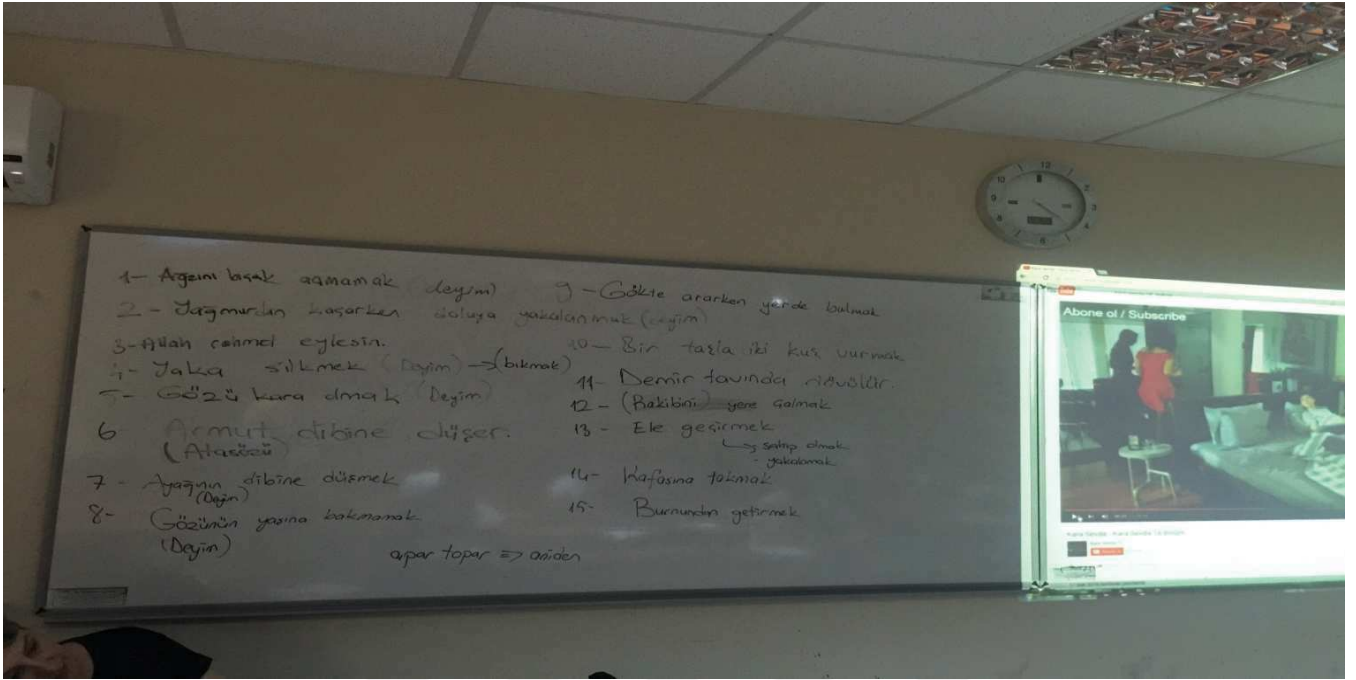 1- Ağzını bıçak açmamak (deyim)
2- Yağmurdan kaçarken doluya yakalanmak (deyim)
3- Allah rahmet eylesin.
4- Yaka silkmek (Deyim) → (bıkmak)
5- Gözü kara olmak (Deyim)
6 Armut dibine düşer.
(Atasözü)
7- Ayağının dibine düşmek
(Deyim)
8- Gözünün yaşına bakmamak
(Deyim)
apar topar => aniden
9- Gökte ararken yerde bulmak
10- Bir taşla iki kuş vurmak
11- Demir tavında dövülür.
12- (Rakibini) yere çalmak
13- Ele geçirmek
sahip olmak
- yakalamak
14- Kafasına takmak
15- Burnundan getirmek
Abone ol / Subscribe
Kara Sevda - Kara Sevda